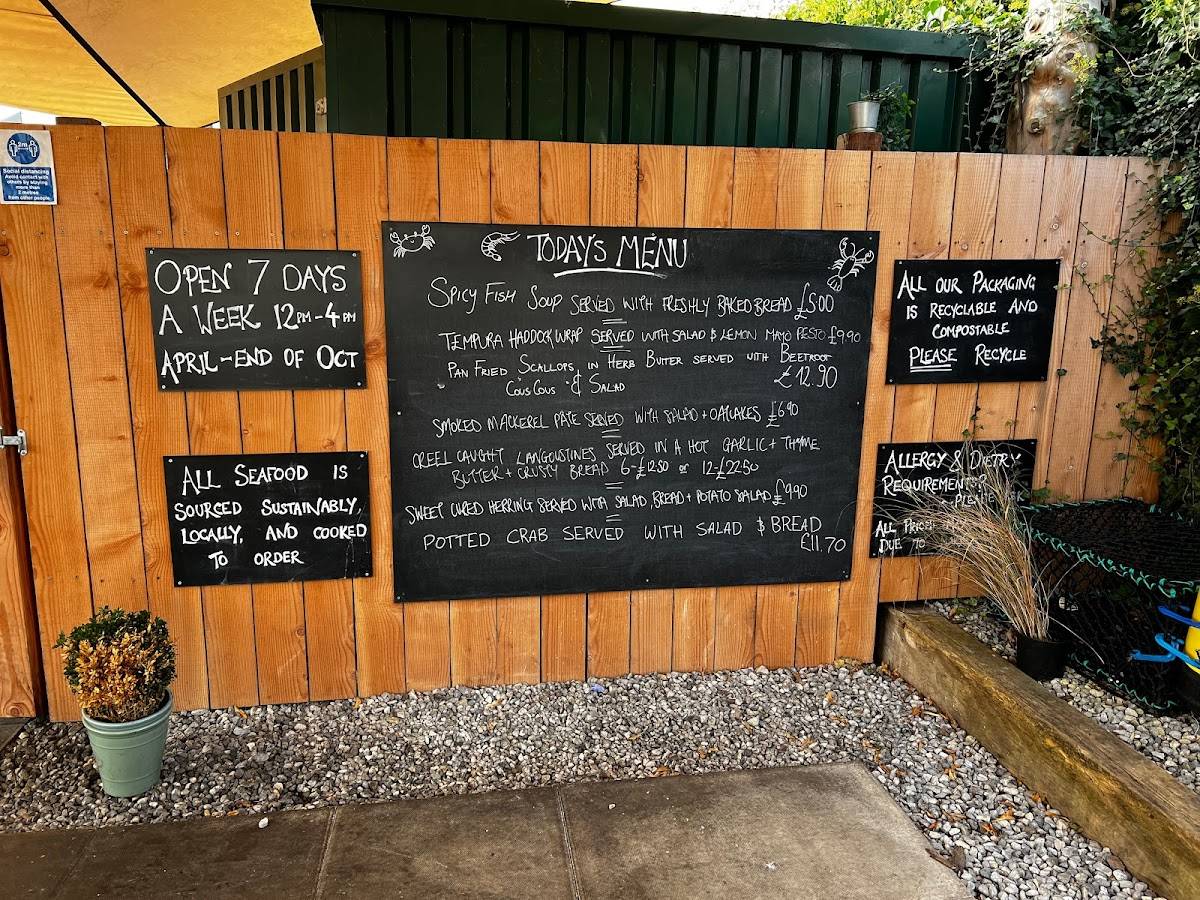 2m
Social distancing
Avoid contact with
others by staying
more than
2 metres
from other people
OPEN 7 DAYS
A WEEK 12PM-4PM
APRIL-END OF OCT
ALL SEAFOOD IS
SOURCED SUSTAINABLY,
LOCALLY, AND COOKED
TO ORDER
TODAY'S MENU
SPICY FISH SOUP SERVED WITH FRESHLY BAKED BREAD £5.00
TEMPURA HADDOCK WRAP SERVED WITH SALAD & LEMON MAYO PESTO £9.90
PAN FRIED SCALLOPS IN HERB BUTTER SERVED WITH BEETROOT
COUS COUS & SALAD £12.90
SMOKED MACKEREL PATE SERVED WITH SALAD + OATCAKES £6.90
CREEL CAUGHT LANGOUSTINES SERVED IN A HOT GARLIC + THYME
BUTTER + CRUSTY BREAD 6-£12.50 or 12-£22.50
SWEET CURED HERRING SERVED WITH SALAD, BREAD + POTATO SALAD £9.90
POTTED CRAB SERVED WITH SALAD & BREAD
£11.70
ALL OUR PACKAGING
IS RECYCLABLE AND
COMPOSTABLE
PLEASE RECYCLE
ALLERGY & DIETRY
REQUIREMENTS
PLEASE ASK
ALL PRICES
DUE TO